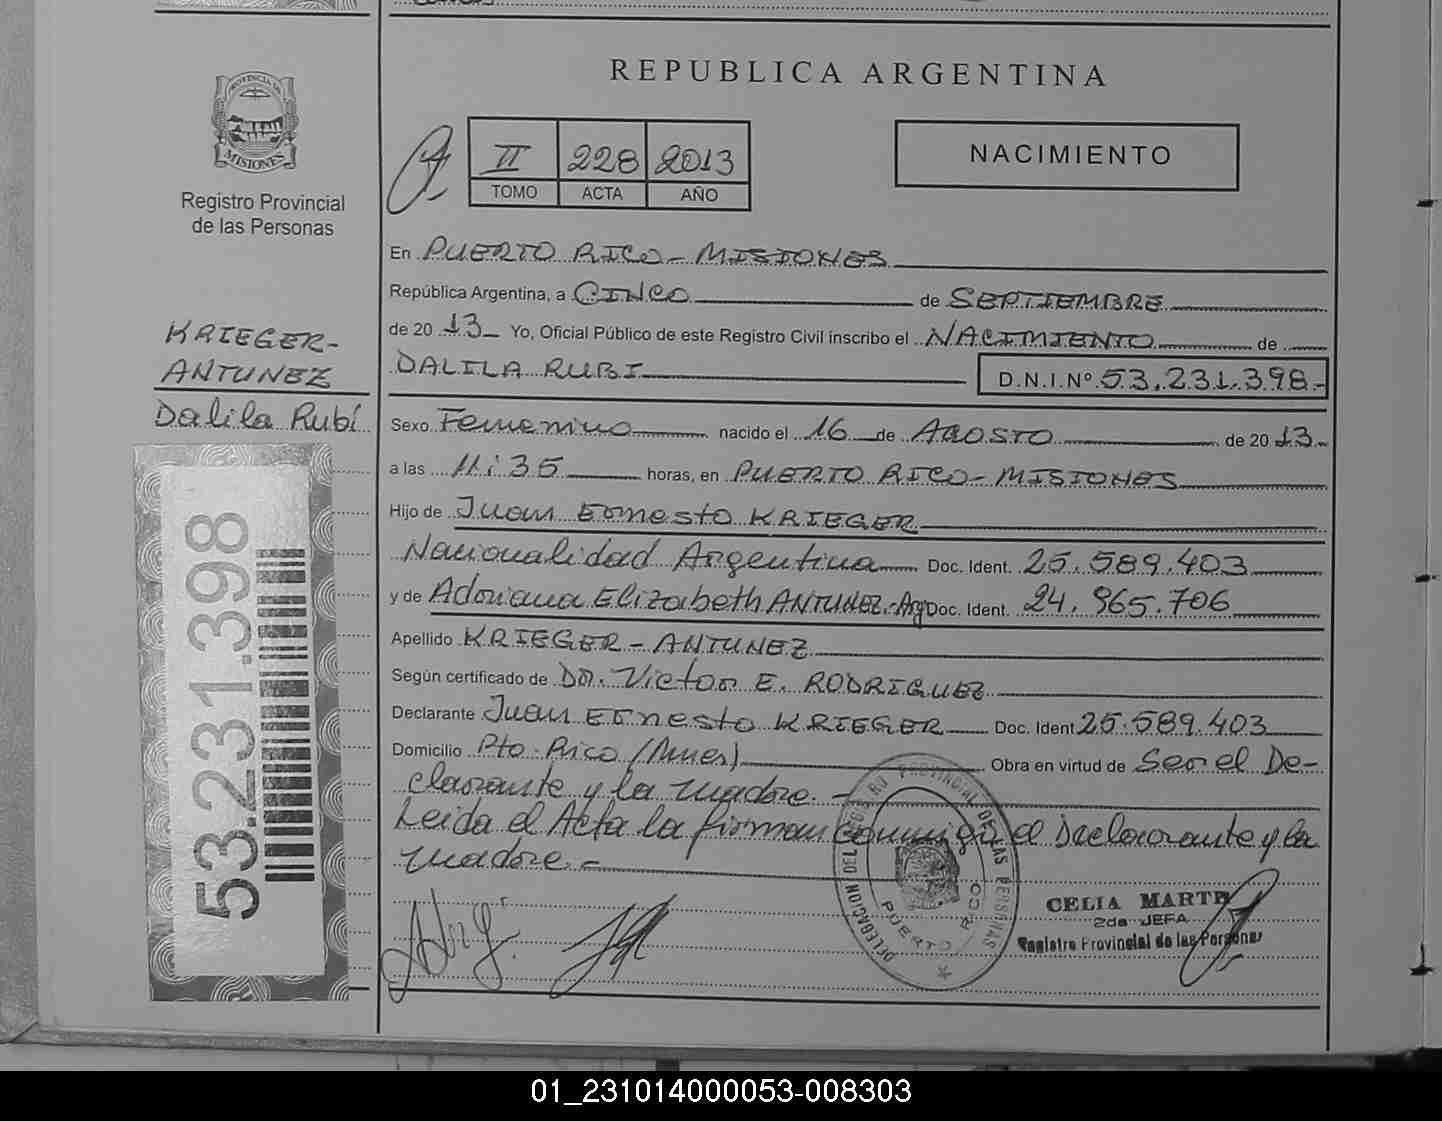 REPUBLICA ARGENTINA
PROVINCIA DE
MISIONES
Registro Provincial
de las Personas
II 228 2013
TOMO ACTA AÑO
NACIMIENTO
En PUERTO RICO - MISIONES
República Argentina, a CINCO de SEPTIEMBRE
de 20 13 Yo, Oficial Público de este Registro Civil inscribo el NACIMIENTO de
DALILA RUBI D.N.I.Nº 53.231.398.-
KRIEGER-
ANTUNEZ
Dalila Rubí
Sexo Femenino nacido el 16 de AGOSTO de 20 13
a las 11:35 horas, en PUERTO RICO - MISIONES
Hijo de Juan Ernesto KRIEGER
Nacionalidad Argentina Doc. Ident. 25.589.403
y de Adriana Elizabeth ANTUNEZ.-Arg Doc. Ident. 24.965.706
Apellido KRIEGER - ANTUNEZ
Según certificado de Dr. Victor E. RODRIGUEZ
Declarante Juan Ernesto KRIEGER Doc. Ident 25.589.403
Domicilio Pto. Rico (Mnes) Obra en virtud de Ser el De-
clarante y la madre.-
Leida el Acta la firman conmigo el Declarante y la
madre.-
53.231.398
DELEGACION DEL REGISTRO PROVINCIAL DE LAS PERSONAS
PUERTO RICO
CELIA MARTE
2da JEFA
Registro Provincial de las Personas
01_231014000053-008303